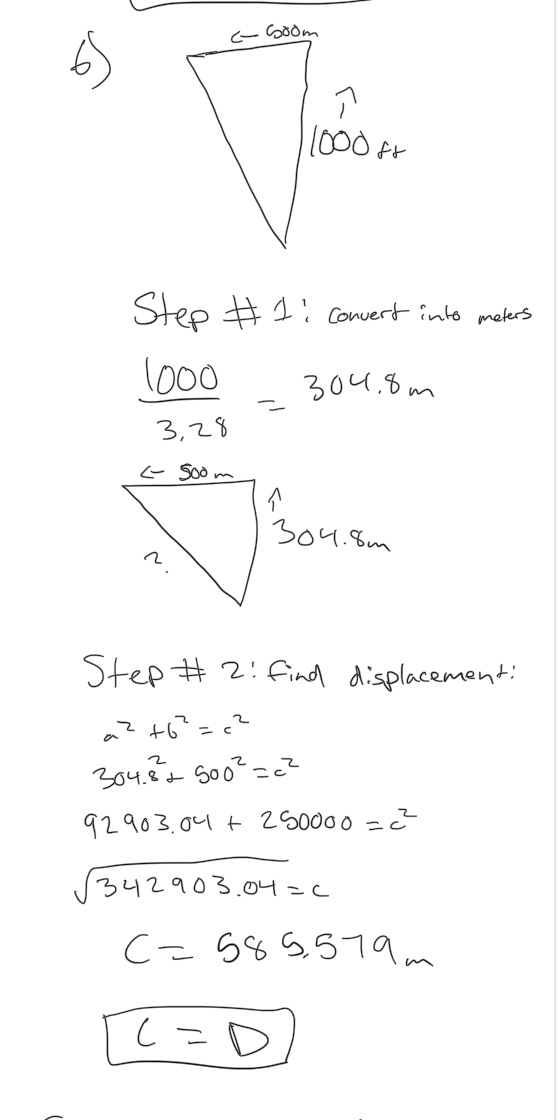 6)
← 500m
↑
1000 ft
Step # 1: convert into meters
1000
3.28
= 304.8m
← 500m
↑
304.8m
?
Step # 2: find displacement:
a² + b² = c²
304.8² + 500² = c²
92903.04 + 250000 = c²
√342903.04 = c
C = 585.579m
C = D